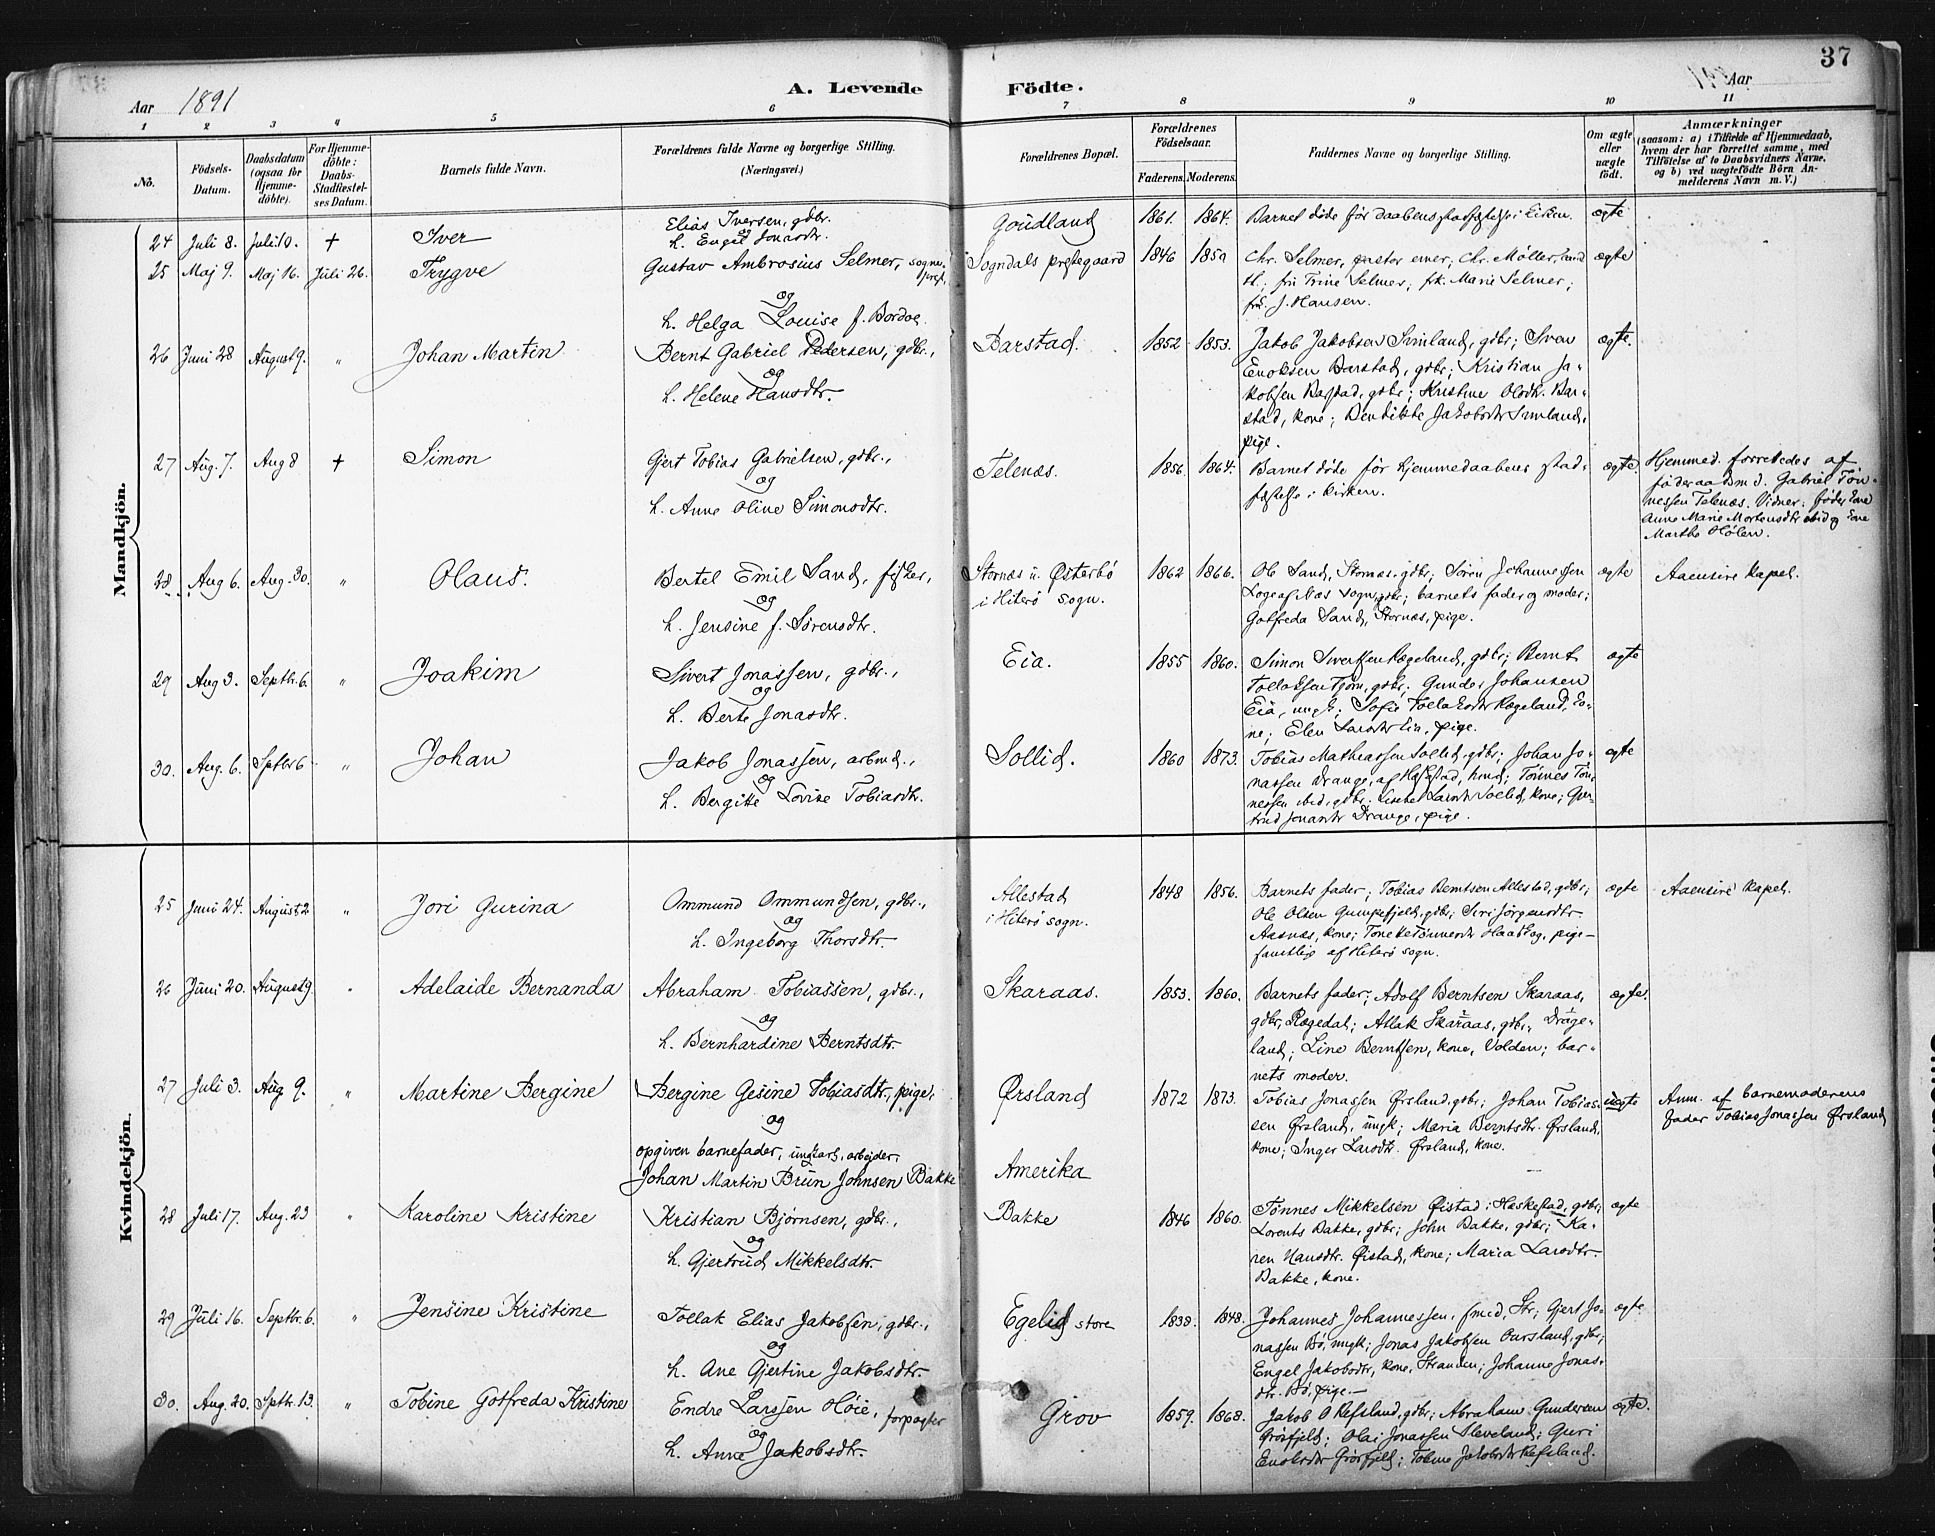 37
Aar 1891 A. Levende Födte. Aar
1 2 3 4 5 6 7 8 9 10 11
No.
Födsels-Datum.
Daabsdatum (ogsaa for Hjemme-döbte).
For Hjemme-döbte: Daabs-Stadfæstel-ses Datum.
Barnets fulde Navn.
Forældrenes fulde Navne og borgerlige Stilling.
(Næringsvei.)
Forældrenes Bopæl.
Forældrenes Födselsaar.
Faderens. Moderens.
Faddernes Navne og borgerlige Stilling.
Om ægte eller uægte födt.
Anmærkninger
(saasom: a) i Tilfælde af Hjemmedaab,
hvem der har forrettet samme, med
Tilföielse af to Daabsvidners Navne,
og b) ved uægtefödte Börn An-
melderens Navn m. V.)
Mandkjön.
24 Juli 8. Juli 10. + Iver
Elias Iversen, gdbr.
og
h. Engel Jonasdtr.
Goudland 1861. 1864.
Barnet døde før daabens stadfæstelse i kirken.
ægte
25 Maj 9. Maj 16. Juli 26. Trygve
Gustav Ambrosius Selmer, sogne-
prest,
og
h. Helga Louise f. Bordoe.
Sogndals prestegaard 1846 1850
Chr. Selmer, pastor emer; Chr. Møller, cand
th.; fru Trine Selmer; frk. Marie Selmer;
frk. J. Hansen.
ægte
26 Juni 28 August 9. " Johan Martin
Bernt Gabriel Pedersen, gdbr.,
og
h. Helene Hansdtr.
Barstad. 1852 1853.
Jakob Jakobsen Svinland, gdbr; Sven
Enoksen Barstad, gdbr; Kristian Ja-
kobsen Barstad, gdbr; Kristine Olsdtr. Bar-
stad, kone; Bendikte Jakobsdtr Svinland,
pige.
ægte.
27 Aug. 7. Aug 8 + Simon
Gjert Tobias Gabrielsen, gdbr.,
og
h. Anne Oline Simonsdtr.
Telenæs. 1856. 1864.
Barnet døde før hjemmedaabens stad-
fæstelse i kirken.
ægte.
Hjemmed. forrettedes af
føderaadsmd. Gabriel Tøn-
nessen Telenæs. Vidner: føder kone
Anne Marie Mortensdtr ibid og kone
Marthe Hølen.
28. Aug 6. Aug. 30. " Olaus.
Bertel Emil Sand, fisker,
og
h. Jensine f. Sørensdtr.
Stornæs u. Østerbø
i Hiterø sogn.
1862 1866.
Ole Sand, Stornæs, gdbr; Søren Johannessen
Logea, Næs sogn, gdbr; barnets fader og moder;
Gotfreda Sand, Stornæs, pige.
ægte
Aaensire Kapel.
29 Aug 3. Septbr. 6. " Joakim
Sivert Jonassen, gdbr.,
og
h. Berte Jonasdtr.
Eia. 1855 1860.
Simon Sivertsen Rægeland, gdbr; Bernt
Tollaksen Tjørn, gdbr; Gunder Johansen
Eia, ungk; Sofie Tollaksdtr Rægeland, ko-
ne; Elen Larsdtr Eia, pige.
ægte
30. Aug. 6. Septbr 6 " Johan
Jakob Jonassen, arbmd.,
og
h. Bergitte Lovise Tobiasdtr.
Sollid. 1860 1873.
Tobias Mathiassen Sollid, gdbr; Johan Jo-
nassen Drange, af Heskestad, knud; Tønnes Tøn-
nessen ibid, gdbr; Larsdtr Sollid, kone; Gjer-
trud Jonasdtr Drange, pige.
ægte
Kvindekjön.
25 Juni 24. August 2 " Jori Gurina
Ommund Ommundsen, gdbr.,
og
h. Ingeborg Thorsdtr.
Allestad
i Hiterø sogn.
1848 1856.
Barnets fader; Tobias Berntsen Allestad, gdbr;
Ole Olsen Gumpefjeld, gdbr; Siri Jørgensdtr.
Aasnæs, kone; Tonette Haabeg, pige -
samtlige af Hiterø sogn.
ægte
Aaensire Kapel.
26 Juni 20. August 9. " Adelaide Bernanda
Abraham Tobiassen, gdbr.,
og
h. Bernhardine Berntsdtr.
Skaraas. 1853. 1860.
Barnets fader; Adolf Berntsen Skaraas,
gdbr, Rægedal; Atlak Skaraas, gdbr. Dræge-
land; Line Berntsen, kone, Volden; bar-
nets moder.
ægte.
27 Juli 3. Aug. 9. " Martine Bergine
Bergine Gesine Tobiasdtr., pige,
og
opgiven barnefader, ungkarl, arbejder,
Johan Martin Brun Johnsen Bakke
Ørsland
Amerika
1872 1873.
Tobias Jonassen Ørsland, gdbr; Johan Tobias-
sen Ørsland, ungk; Maria Berntsdtr. Ørsland,
kone; Inger Larsdtr. Ørsland, kone.
uægte
Anm. af barnemoderens
fader Tobias Jonassen Ørsland
28 Juli 17. Aug. 23 " Karoline Kristine
Kristian Bjørnsen, gdbr.,
og
h. Gjertrud Mikkelsdtr.
Bakke 1846 1860.
Tønnes Mikkelsen Øistad i Heskestad, gdbr;
Lorents Bakke, gdbr; John Bakke, gdbr; Ka-
ren Hansdtr. Øistad, kone; Maria Larsdtr.
Bakke, kone.
ægte
29 Juli 16. Septbr. 6. " Jensine Kristine
Tollak Elias Jakobsen, gdbr.,
og
h. Ane Gjertine Jakobsdtr.
Egelid store 1838. 1848.
Johannes Johannessen, Str; Gjert Jo-
nassen Bø, ungk; Jonas Jakobsen Oursland, gdbr;
Engel Jakobsdtr, kone, Stranden; Johanne Jonas-
dtr. Bø, pige.
ægte
30. Aug. 20. Septbr. 13. " Tobine Gotfreda Kristine
Endre Larssen Høie, forpagter
og
h. Anne Jakobsdtr.
Grov 1859. 1868.
Jakob O Refsland, gdbr; Abraham Gundersen
Grøsfjeld; Olai Jonassen Sleveland; Guri
Enoksdtr Grøsfjeld; Tobine Jakobsdtr Refsland.
ægte.